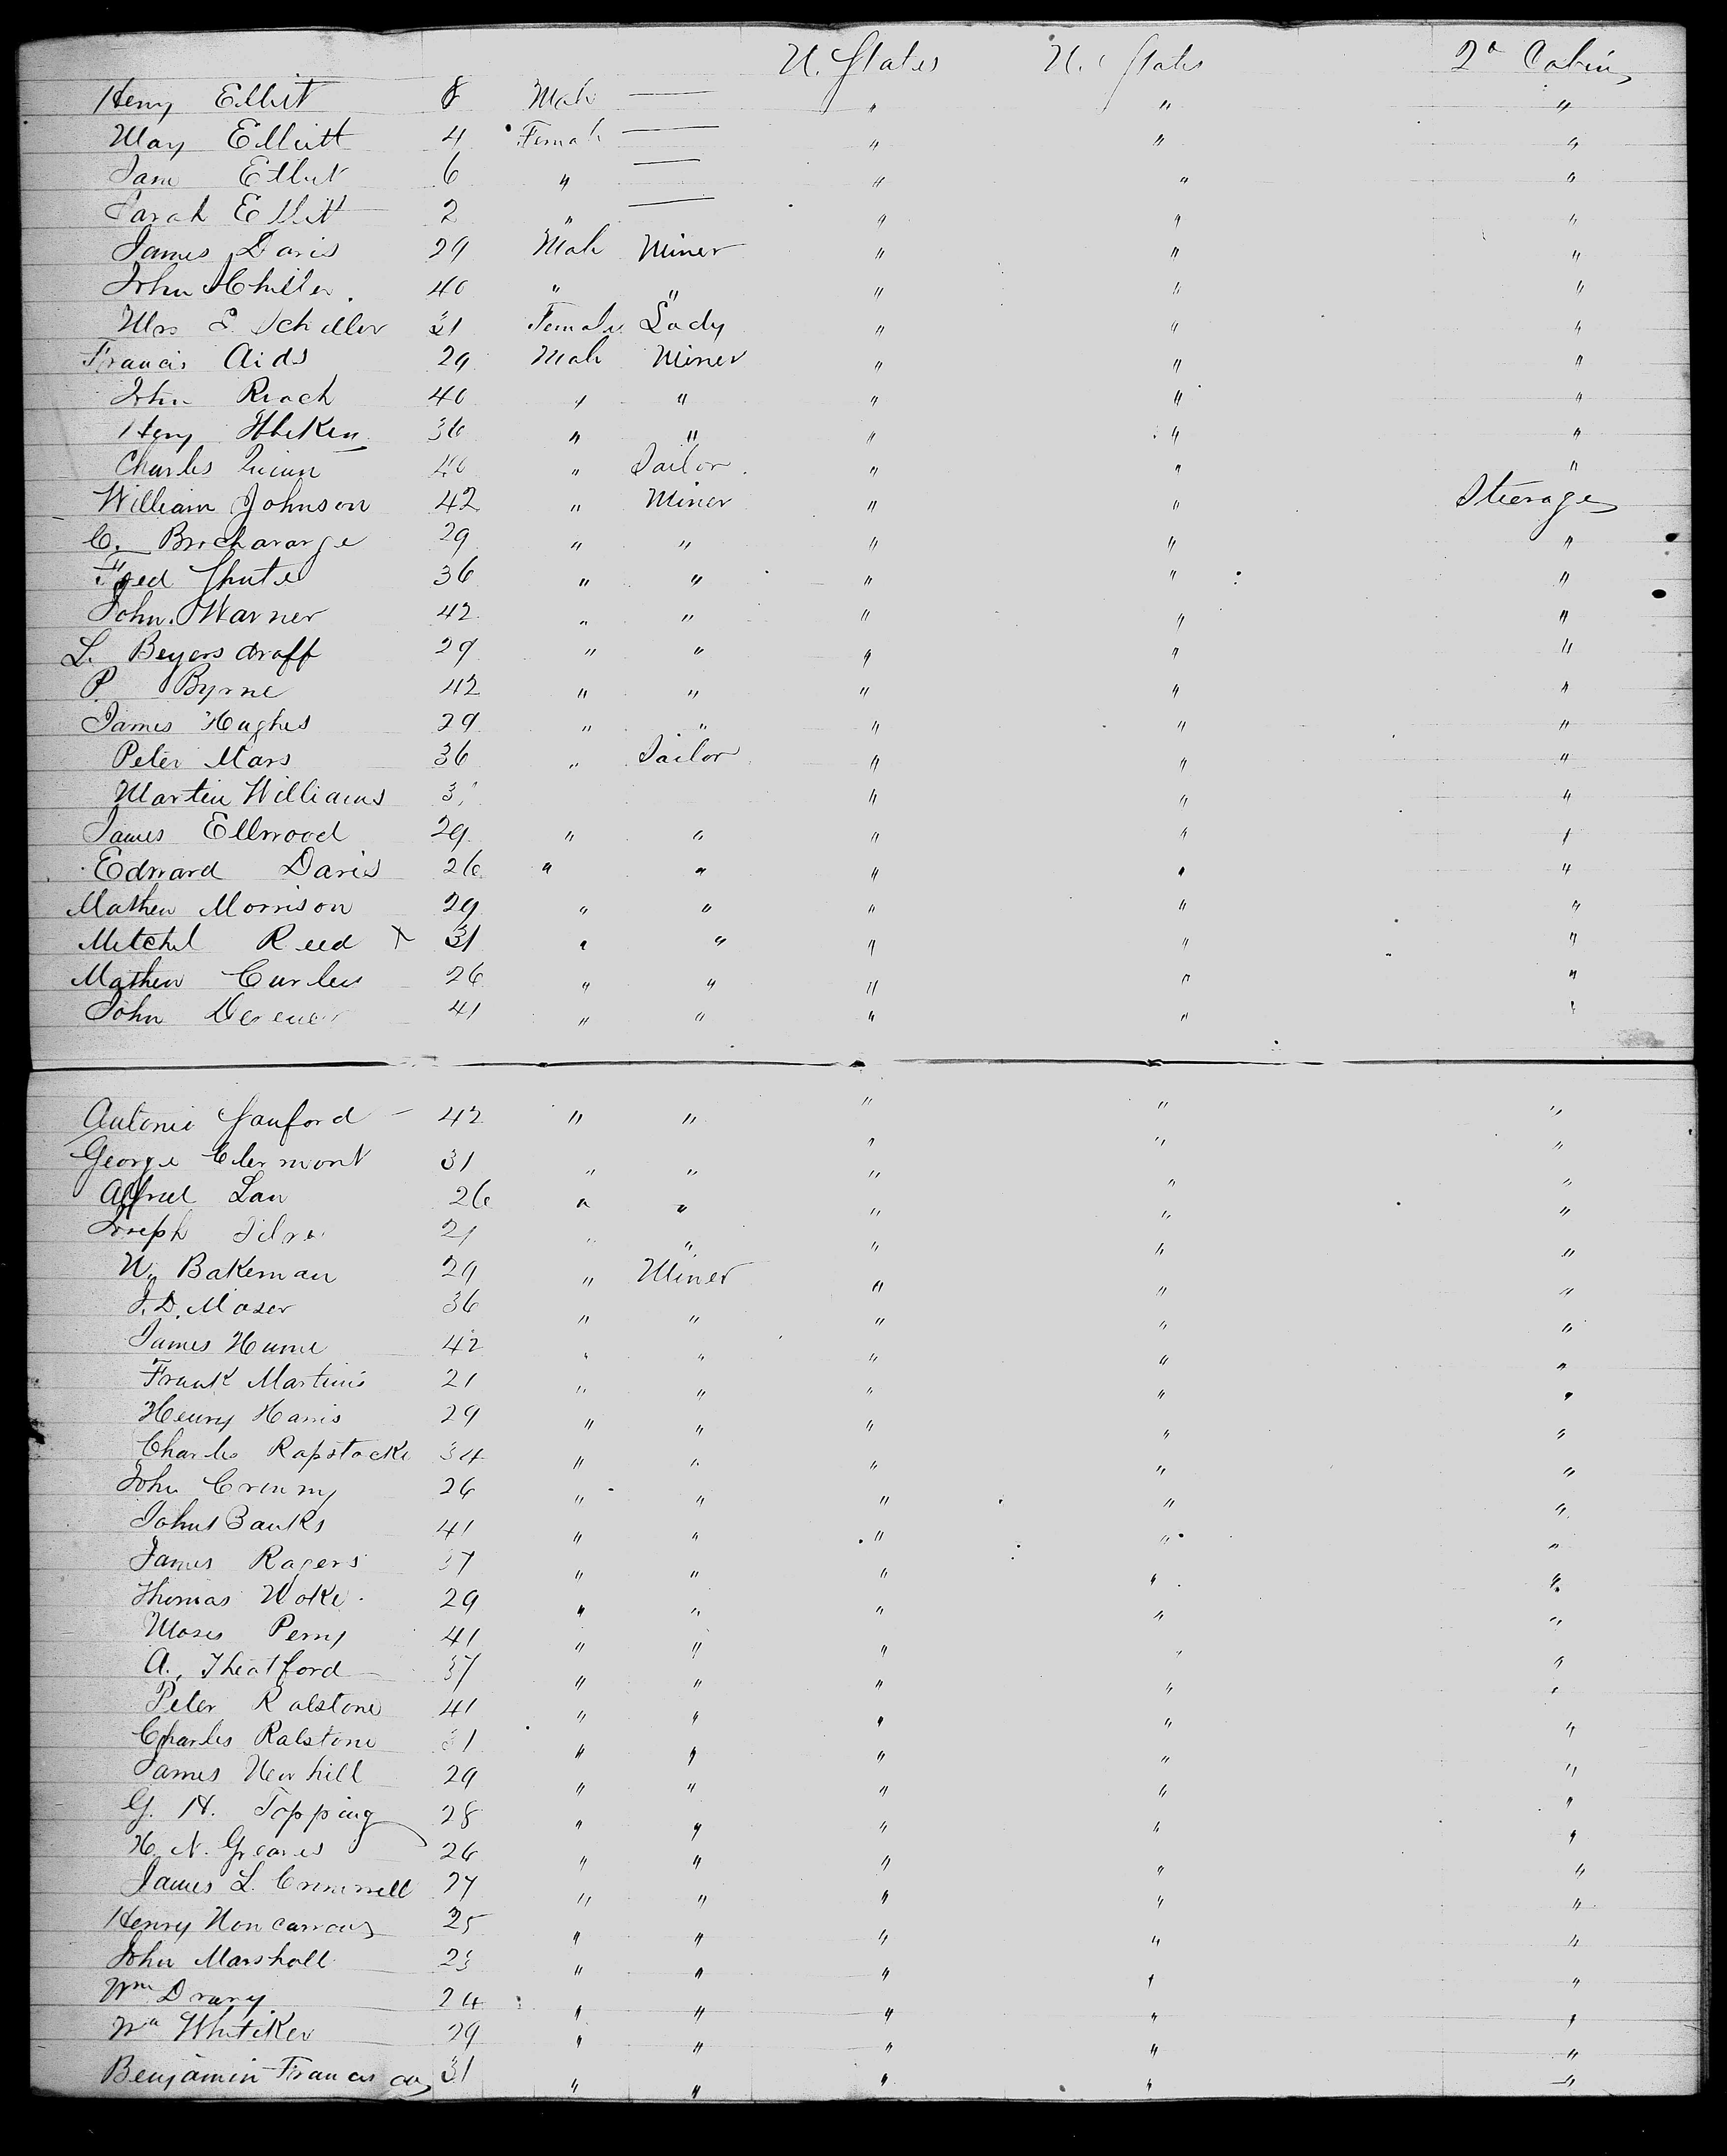 U. States U. States 2d Cabin
Henry Elliott 8 Male — " " "
May Elliott 4 Female — " " "
Jane Elliot 6 " — " " "
Sarah Elliott 2 " — " " "
James Davis 29 Male Miner " " "
John Schiller 40 " " " " "
Mrs S. Schiller 31 Female Lady " " "
Francis Aids 29 Male Miner " " "
John Roach 40 " " " " "
Henry 36 " " " " "
Charles 40 " Sailor " " "
William Johnson 42 " Miner " " Steerage
C. 29 " " " " "
Fred Shute 36 " " " " "
John Warner 42 " " " " "
L. Beyersdraff 29 " " " " "
P. Byrne 42 " " " " "
James Hughes 29 " " " " "
Peter Mars 36 " Sailor " " "
Martin Williams " " "
James Ellwood 29 " " " " "
Edward Davis 26 " " " " "
Mathew Morrison 29 " " " " "
Mitchel Reed x 31 " " " " "
Mathew Curlew 26 " " " " "
John 41 " " " " "
Antonie Sanford 42 " " " " "
George Clermont 31 " " " " "
Alfred Law 26 " " " " "
Joseph 21 " " " " "
W. Bakeman 29 " Miner " " "
J. D. Moser 36 " " " " "
James Hume 42 " " " " "
Frank Martinis 21 " " " " "
Henry Harris 29 " " " " "
Charles Rapstocke 34 " " " " "
John Crenny 26 " " " " "
John Banks 41 " " " " "
James Rogers 37 " " " " "
Thomas Woke 29 " " " " "
Moses Perry 41 " " " " "
A. Theatford 37 " " " " "
Peter Ralstone 41 " " " " "
Charles Ralstone 31 " " " " "
James Newhill 29 " " " " "
G. H. Topping 28 " " " " "
H. N. Greaves 26 " " " " "
James L. 27 " " " " "
Henry 25 " " " " "
John Marshall 23 " " " " "
Wm Drury 24 " " " " "
Wm Whitiker 29 " " " " "
Benjamin Francis 31 " " " " "